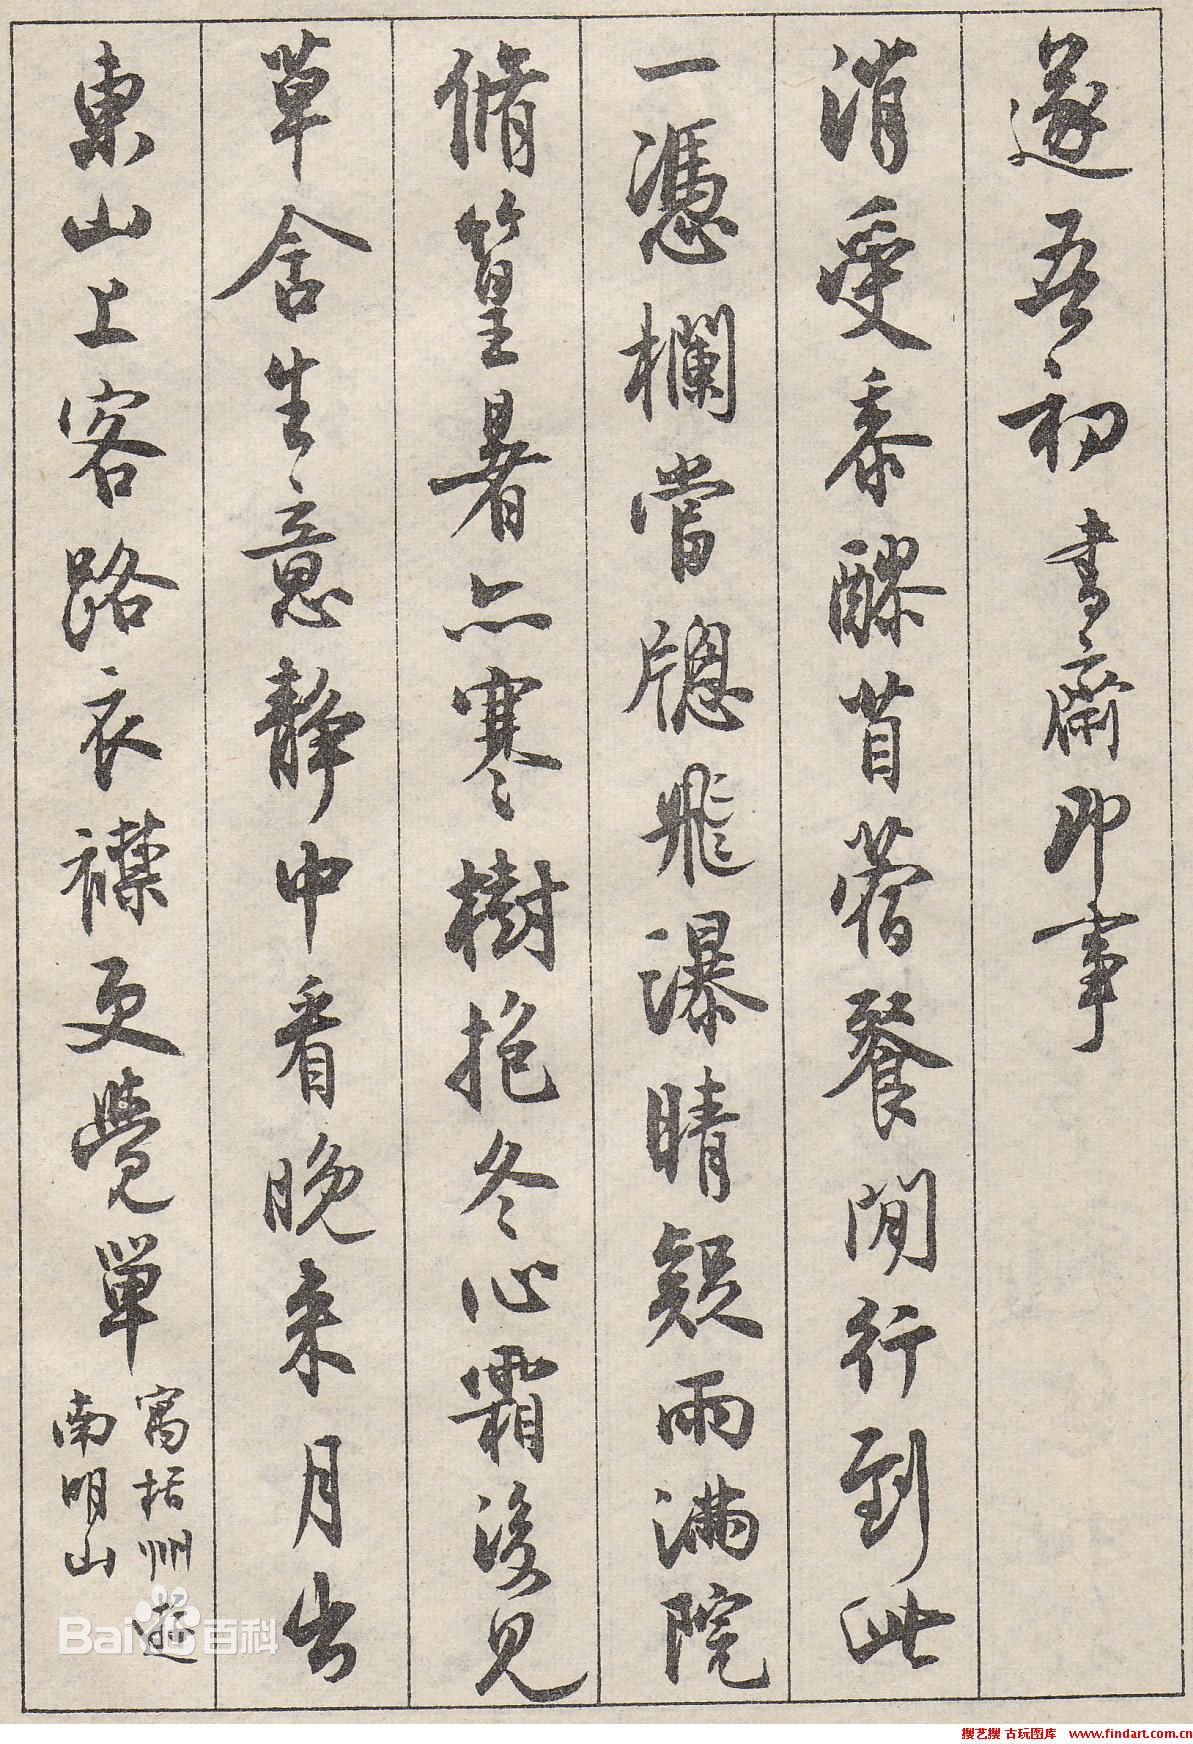 遂吾初書齋即事
消受黍醪苜蓿餐閒行到此
一憑欄當牕飛瀑晴疑雨滿院
脩篁暑亦寒樹抱冬心霜後見
草含生意靜中看晚來月出
東山上客路衣襟更覺單
寓括州遊
南明山
Bai百科
搜艺搜 古玩图库 www.findart.com.cn